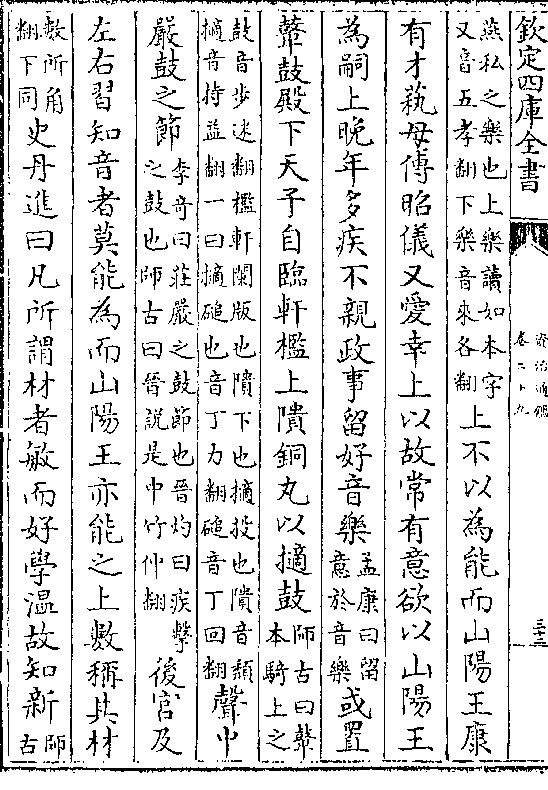 欽定四庫全書
資治通鑑
卷二十九
燕私之樂也上樂讀如本字
又音五孝翻下樂音來各翻
上不以為能而山陽王康
有才藝母傅昭儀又愛幸上以故常有意欲以山陽王
為嗣上晚年多疾不親政事留好音樂
孟康曰留
意於音樂
或置
鼙鼓殿下天子自臨軒檻上隤銅丸以擿鼓
師古曰鼙
本騎上之
鼓音步迷翻檻軒闌版也隤下也擿投也隤音頽
擿音持益翻一曰擿磓也音丁力翻磓音丁回翻
聲中
嚴鼓之節
李奇曰莊嚴之鼓節也晉灼曰疾擊
之鼓也師古曰晉說是中竹仲翻
後宫及
左右習知音者莫能為而山陽王亦能之上數稱其材
數所角
翻下同
史丹進曰凡所謂材者敏而好學温故知新
師
古